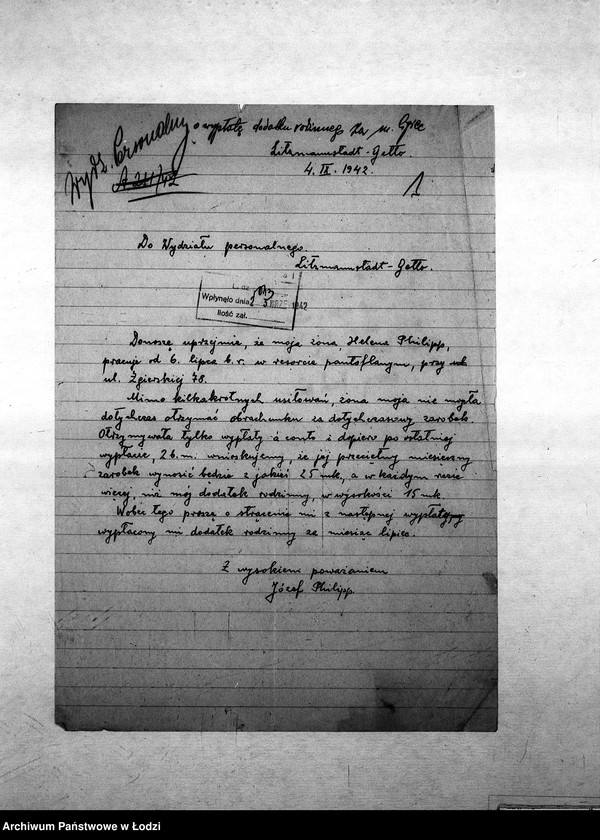 o wypłatę dodatku rodzinnego za m. lipiec
Wydz. Personalny
Litzmannstadt-Getto.
4. IX. 1942.
1
Do Wydziału personalnego.
Litzmannstadt-Getto.
L. dz.
Wpłynęło dnia 5 WRZE 1942
Ilość zał.
Donoszę uprzejmie, że moja żona, Helena Philipp,
pracuje od 6. lipca b.r. w resorcie pantoflanym, przy
ul. Zgierskiej 78.
Mimo kilkakrotnych usiłowań, żona moja nie mogła
dotychczas otrzymać obrachunku za dotychczasowy zarobek.
Otrzymywała tylko wypłaty à conto i dopiero po ostatniej
wypłacie, 2 b.m. wnioskujemy, że jej przeciętny miesięczny
zarobek wynosić będzie z jakieś 25 mk., a w każdym razie
więcej, niż mój dodatek rodzinny, w wysokości 15 mk.
Wobec tego proszę o strącenie mi z następnej wypłaty
wypłacony mi dodatek rodzinny za miesiąc lipiec.
Z wysokiem poważaniem
Józef Philipp.
Archiwum Państwowe w Łodzi